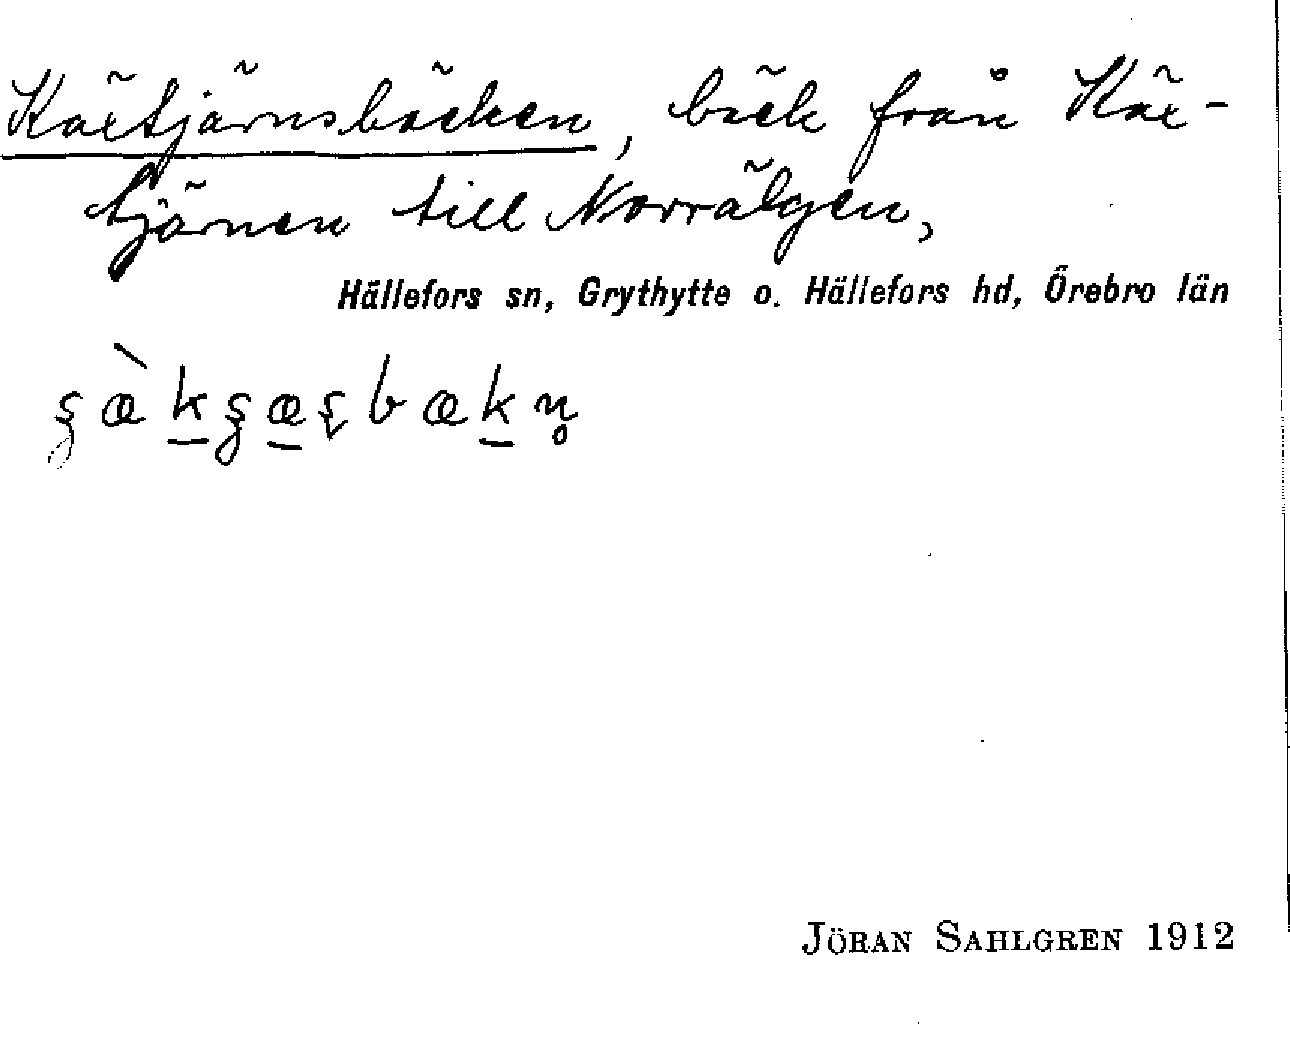 Käxtjärnsbäcken, bäck från Käx-
tjärnen till Norrälgen,
Hällefors sn, Grythytte o. Hällefors hd, Örebro län
JÖRAN SAHLGREN 1912